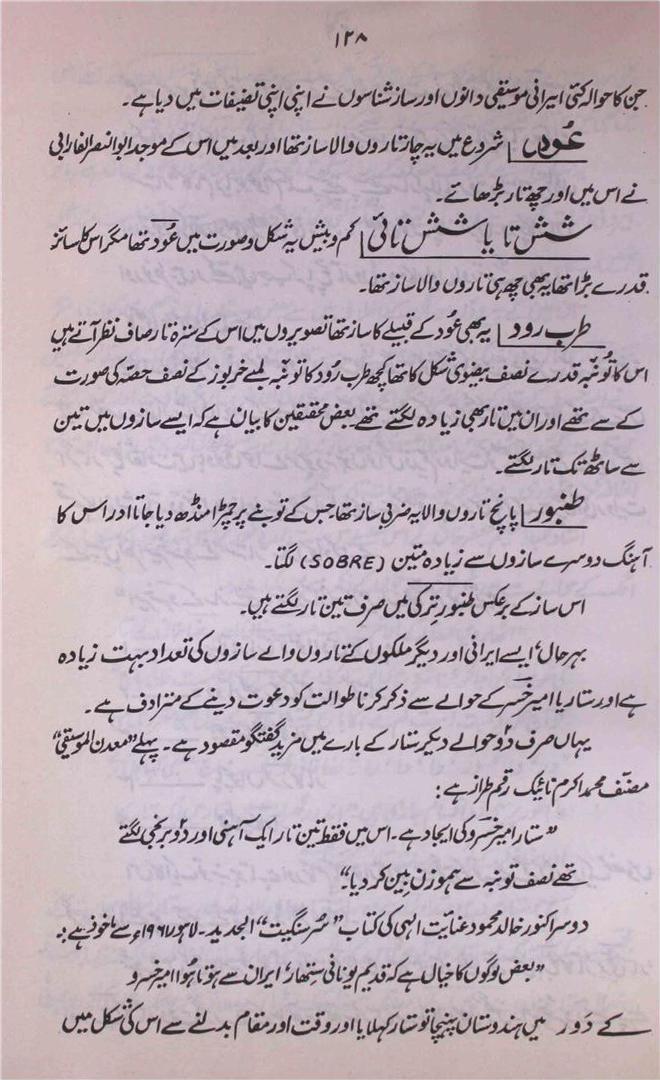 ۱۲۸
جن کا حوالہ کئی ایرانی موسیقی دانوں اور ساز شناسوں نے اپنی اپنی تصنیفات میں دیا ہے۔
عُود | شروع میں یہ چار تاروں والا ساز تھا اور بعد میں اس کے موجد ابو النصر الفارابی
نے اس میں اور چھ تار بڑھائے۔
شش تا یا شش تائی | کم و بیش یہ شکل و صورت میں عُود تھا مگر اس کا سائز
قدرے بڑا تھا یہ بھی چھ ہی تاروں والا ساز تھا۔
طرب رود | یہ بھی عُود کے قبیلے کا ساز تھا تصویروں میں اس کے سترہ تار صاف نظر آتے ہیں
اس کا تُونبہ قدرے نصف بیضوی شکل کا تھا کچھ طرب رُود کا تونبہ لمبے خربوزے کے نصف حصّہ کی صورت
کے سے تھے اور ان میں تار بھی زیادہ لگتے تھے۔ بعض محققین کا بیان ہے کہ ایسے سازوں میں تین
سے ساٹھ تک تار لگتے۔
طنبور | پانچ تاروں والا یہ ضربی ساز تھا۔ جس کے توبنے پر چمڑا منڈھ دیا جاتا اور اس کا
آہنگ دوسرے سازوں سے زیادہ متین (SOBRE) لگتا۔
اس ساز کے برعکس طنبور ترکی میں صرف تین تار لگتے ہیں۔
بہرحال، ایسے ایرانی اور دیگر ملکوں کے تاروں والے سازوں کی تعداد بہت زیادہ
ہے اور ستار یا امیر خسرو کے حوالے سے ذکر کرنا طوالت کو دعوت دینے کے مترادف ہے۔
یہاں صرف دو حوالے دیکر ستار کے بارے میں مزید گفتگو مقصود ہے۔ پہلے "معدن الموسیقی"
مصنّف محمد اکرم نائیک رقم طراز ہے:
"ستار امیر خسرو کی ایجاد ہے۔ اس میں فقط تین تار ایک آہنی اور دو برنجی لگتے
تھے نصف تونبہ سے ہموزن بین کر دیا"۔
دوسرا کنور خالد محمود عنایت الٰہی کی کتاب "سُر سنگیت" الجدید۔ لاہور ۱۹۶۱ء سے ماخوذ ہے:۔
"بعض لوگوں کا خیال ہے کہ قدیم یونانی ستھار، ایران سے ہوتا ہُوا امیر خسرو
کے دَور میں ہندوستان پہنچا تو ستار کہلایا اور وقت اور مقام بدلنے سے اس کی شکل میں